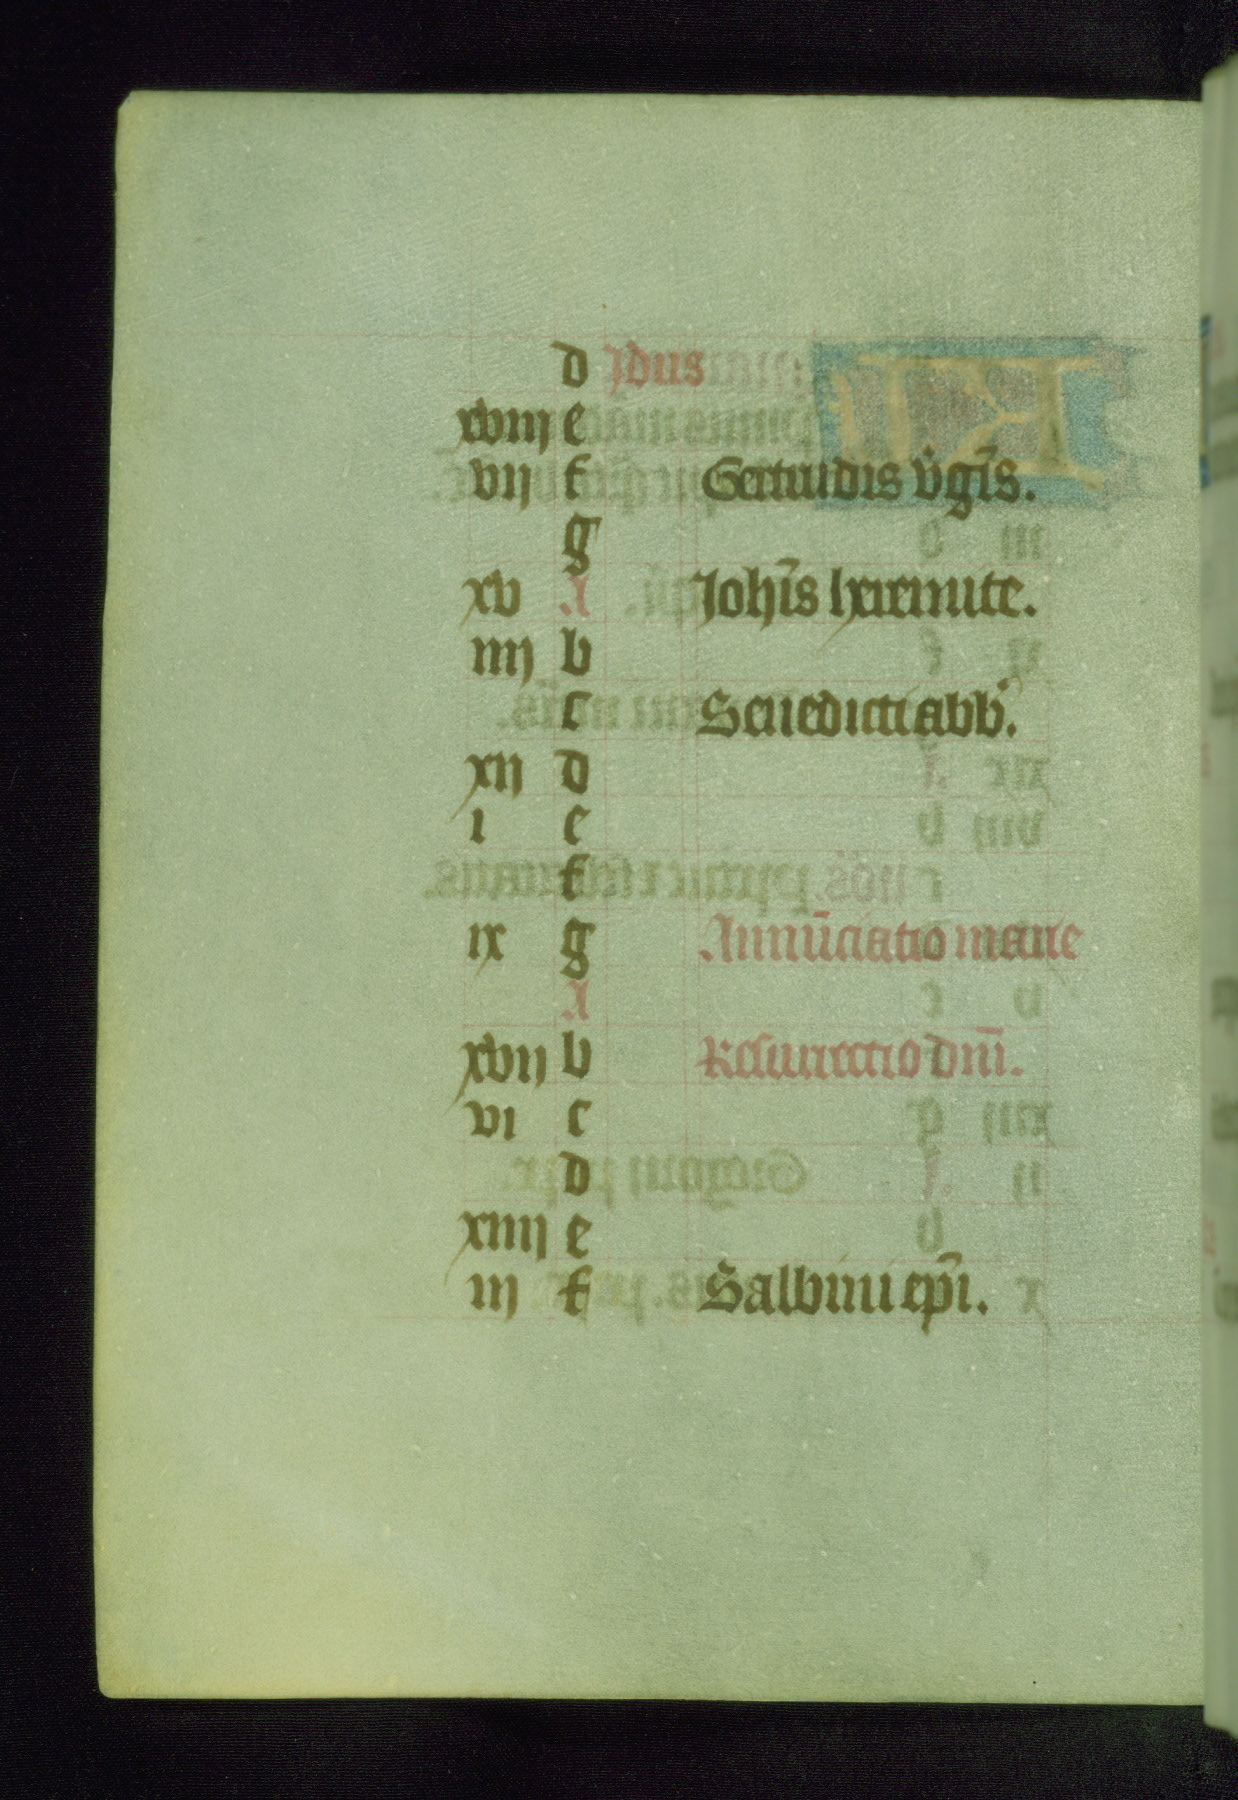 d Idus
xviij e
vij f Gertrudis v̇gīs.
g
xv A
iiij b Joh̄is heremite.
c Benedicti abb̄.
xij d
i e
f
ix g Annūciatio marie
A
xvij b Resurrectio dn̄i.
vi c
d
xiiij e
iij f Salbini ep̄i.